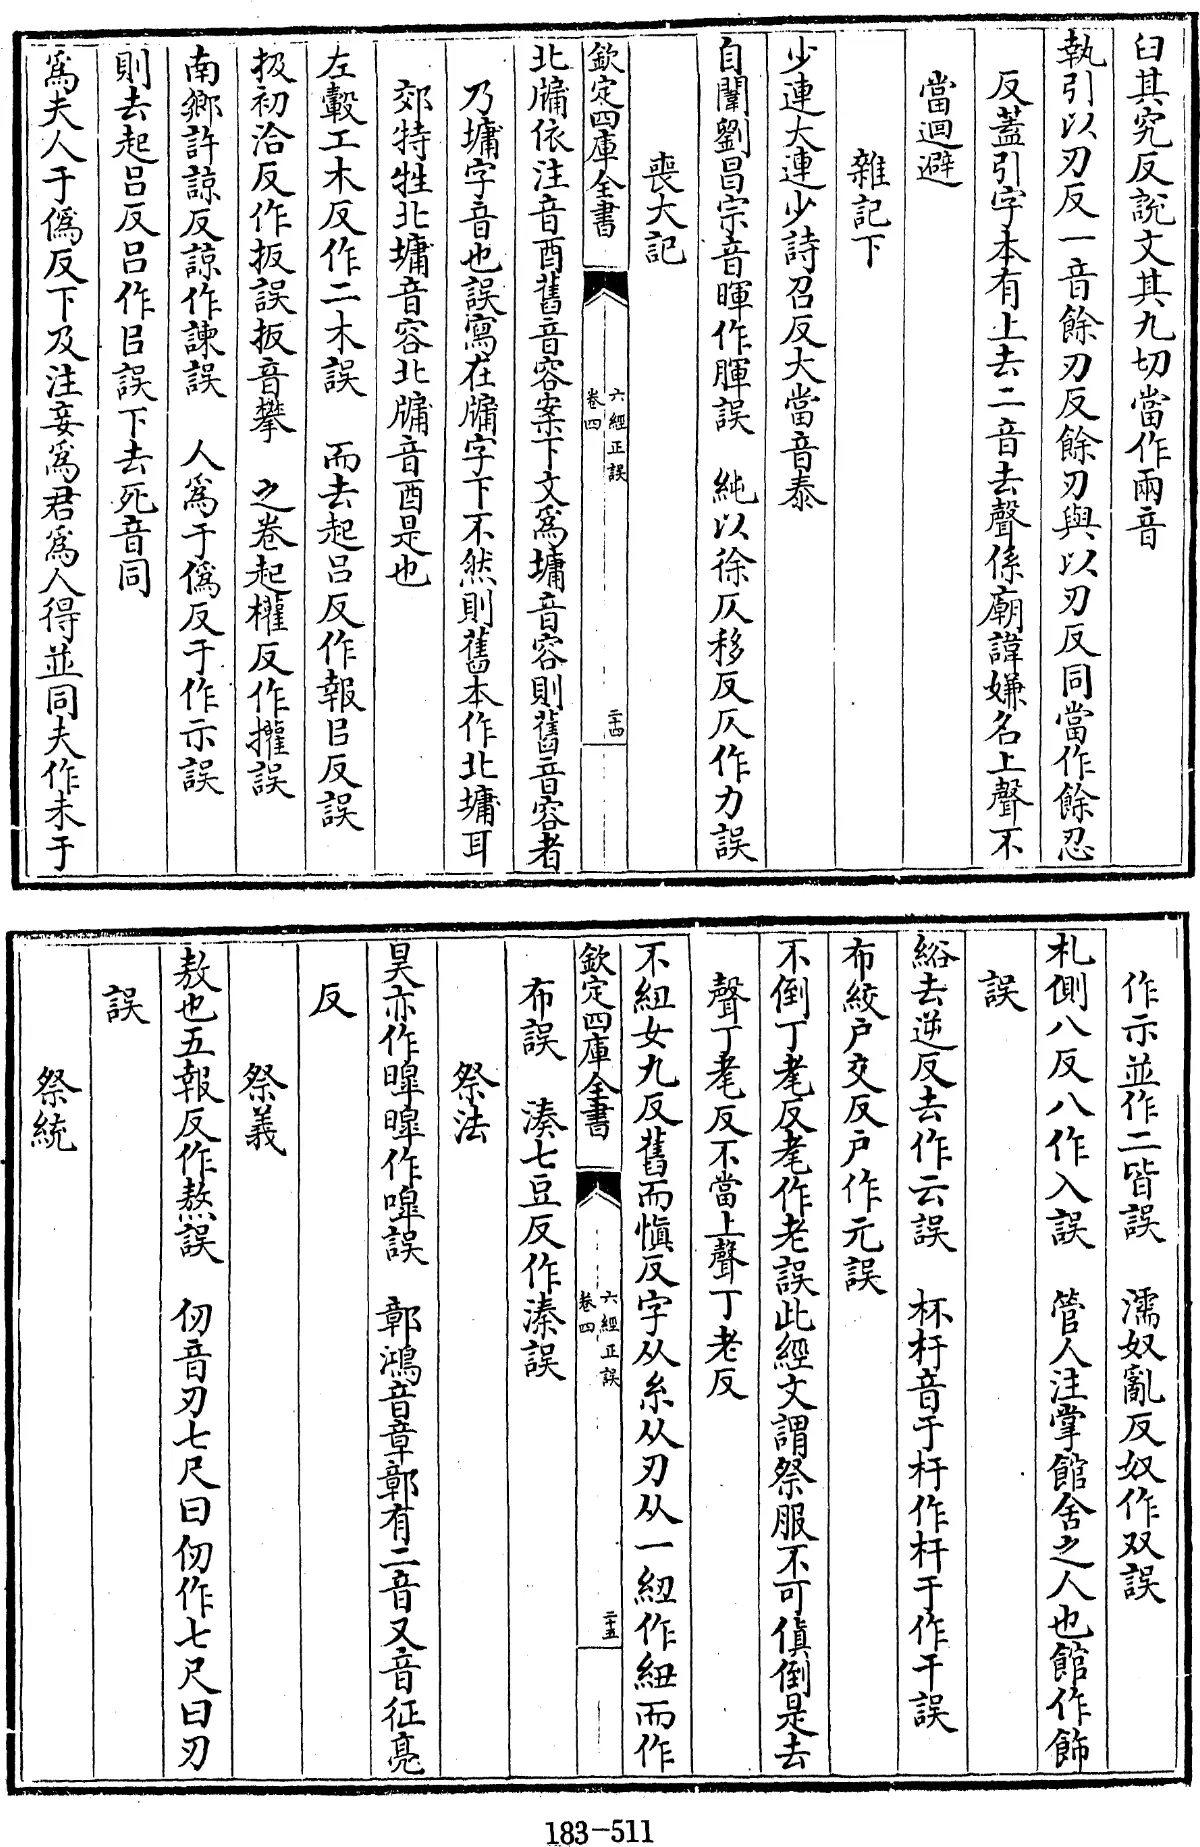 臼其究反說文其九切當作兩音
執引以刃反一音餘刃反餘刃與以刃反同當作餘忍
反蓋引字本有上去二音去聲係廟諱嫌名上聲不
當迴避
雜記下
少連大連少詩召反大當音泰
自闈劉昌宗音暉作腪誤　純以徐仄移反仄作力誤
喪大記
欽定四庫全書　六經正誤　卷四　二十四
北牗依注音酉舊音容案下文爲墉音容則舊音容者
乃墉字音也誤寫在牗字下不然則舊本作北墉耳
郊特牲北墉音容北牗音酉是也
左轂工木反作二木誤　而去起吕反作報吕反誤
扱初洽反作扳誤扳音攀　之卷起權反作攉誤
南鄉許諒反諒作諫誤　人爲于僞反于作示誤
則去起吕反吕作㠯誤下去死音同
爲夫人于僞反下及注妾爲君爲人得並同夫作未于
作示並作二皆誤　濡奴亂反奴作双誤
札側八反八作入誤　管人注掌館舍之人也館作飾
誤
綌去逆反去作云誤　杯杅音于杅作杆于作干誤
布絞戶交反戶作元誤
不倒丁耄反耄作老誤此經文謂祭服不可傎倒是去
聲丁耄反不當上聲丁老反
不紐女九反舊而愼反字从糸从刃从一紐作紐而作
欽定四庫全書　六經正誤　卷四　二十五
布誤　湊七豆反作溱誤
祭法
昊亦作暭暭作㬀誤　鄣鴻音章鄣有二音又音征亮
反
祭義
敖也五報反作熬誤　仞音刃七尺曰仞作七尺曰刃
誤
祭統
183-511